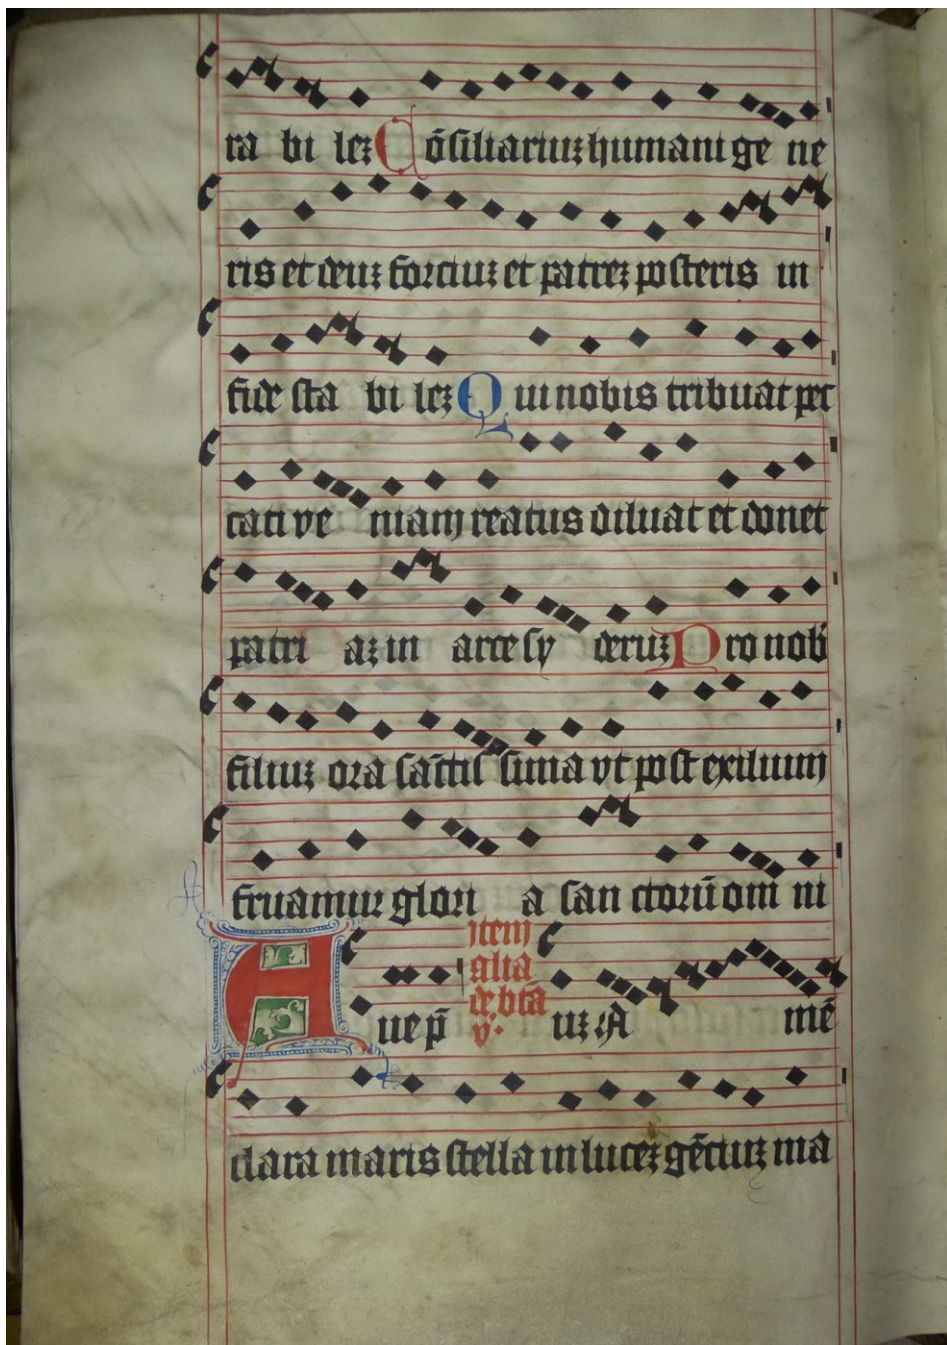 ra bi leʒ Cōsiliariuʒ humani ge ne
ris et deuʒ fortiuʒ et patreʒ posteris in
fide sta bi leʒ Qui nobis tribuat pec
cati ve niam reatus diluat et donet
patri aʒ in arce sy deruʒ Pro nob
filiuʒ ora sāctis sima vt post exilium
fruamur glori a san ctorū om ni
uʒ A mē
Item
alia
de btā
v.
Aue p̄
clara maris stella in luceʒ gētiuʒ ma